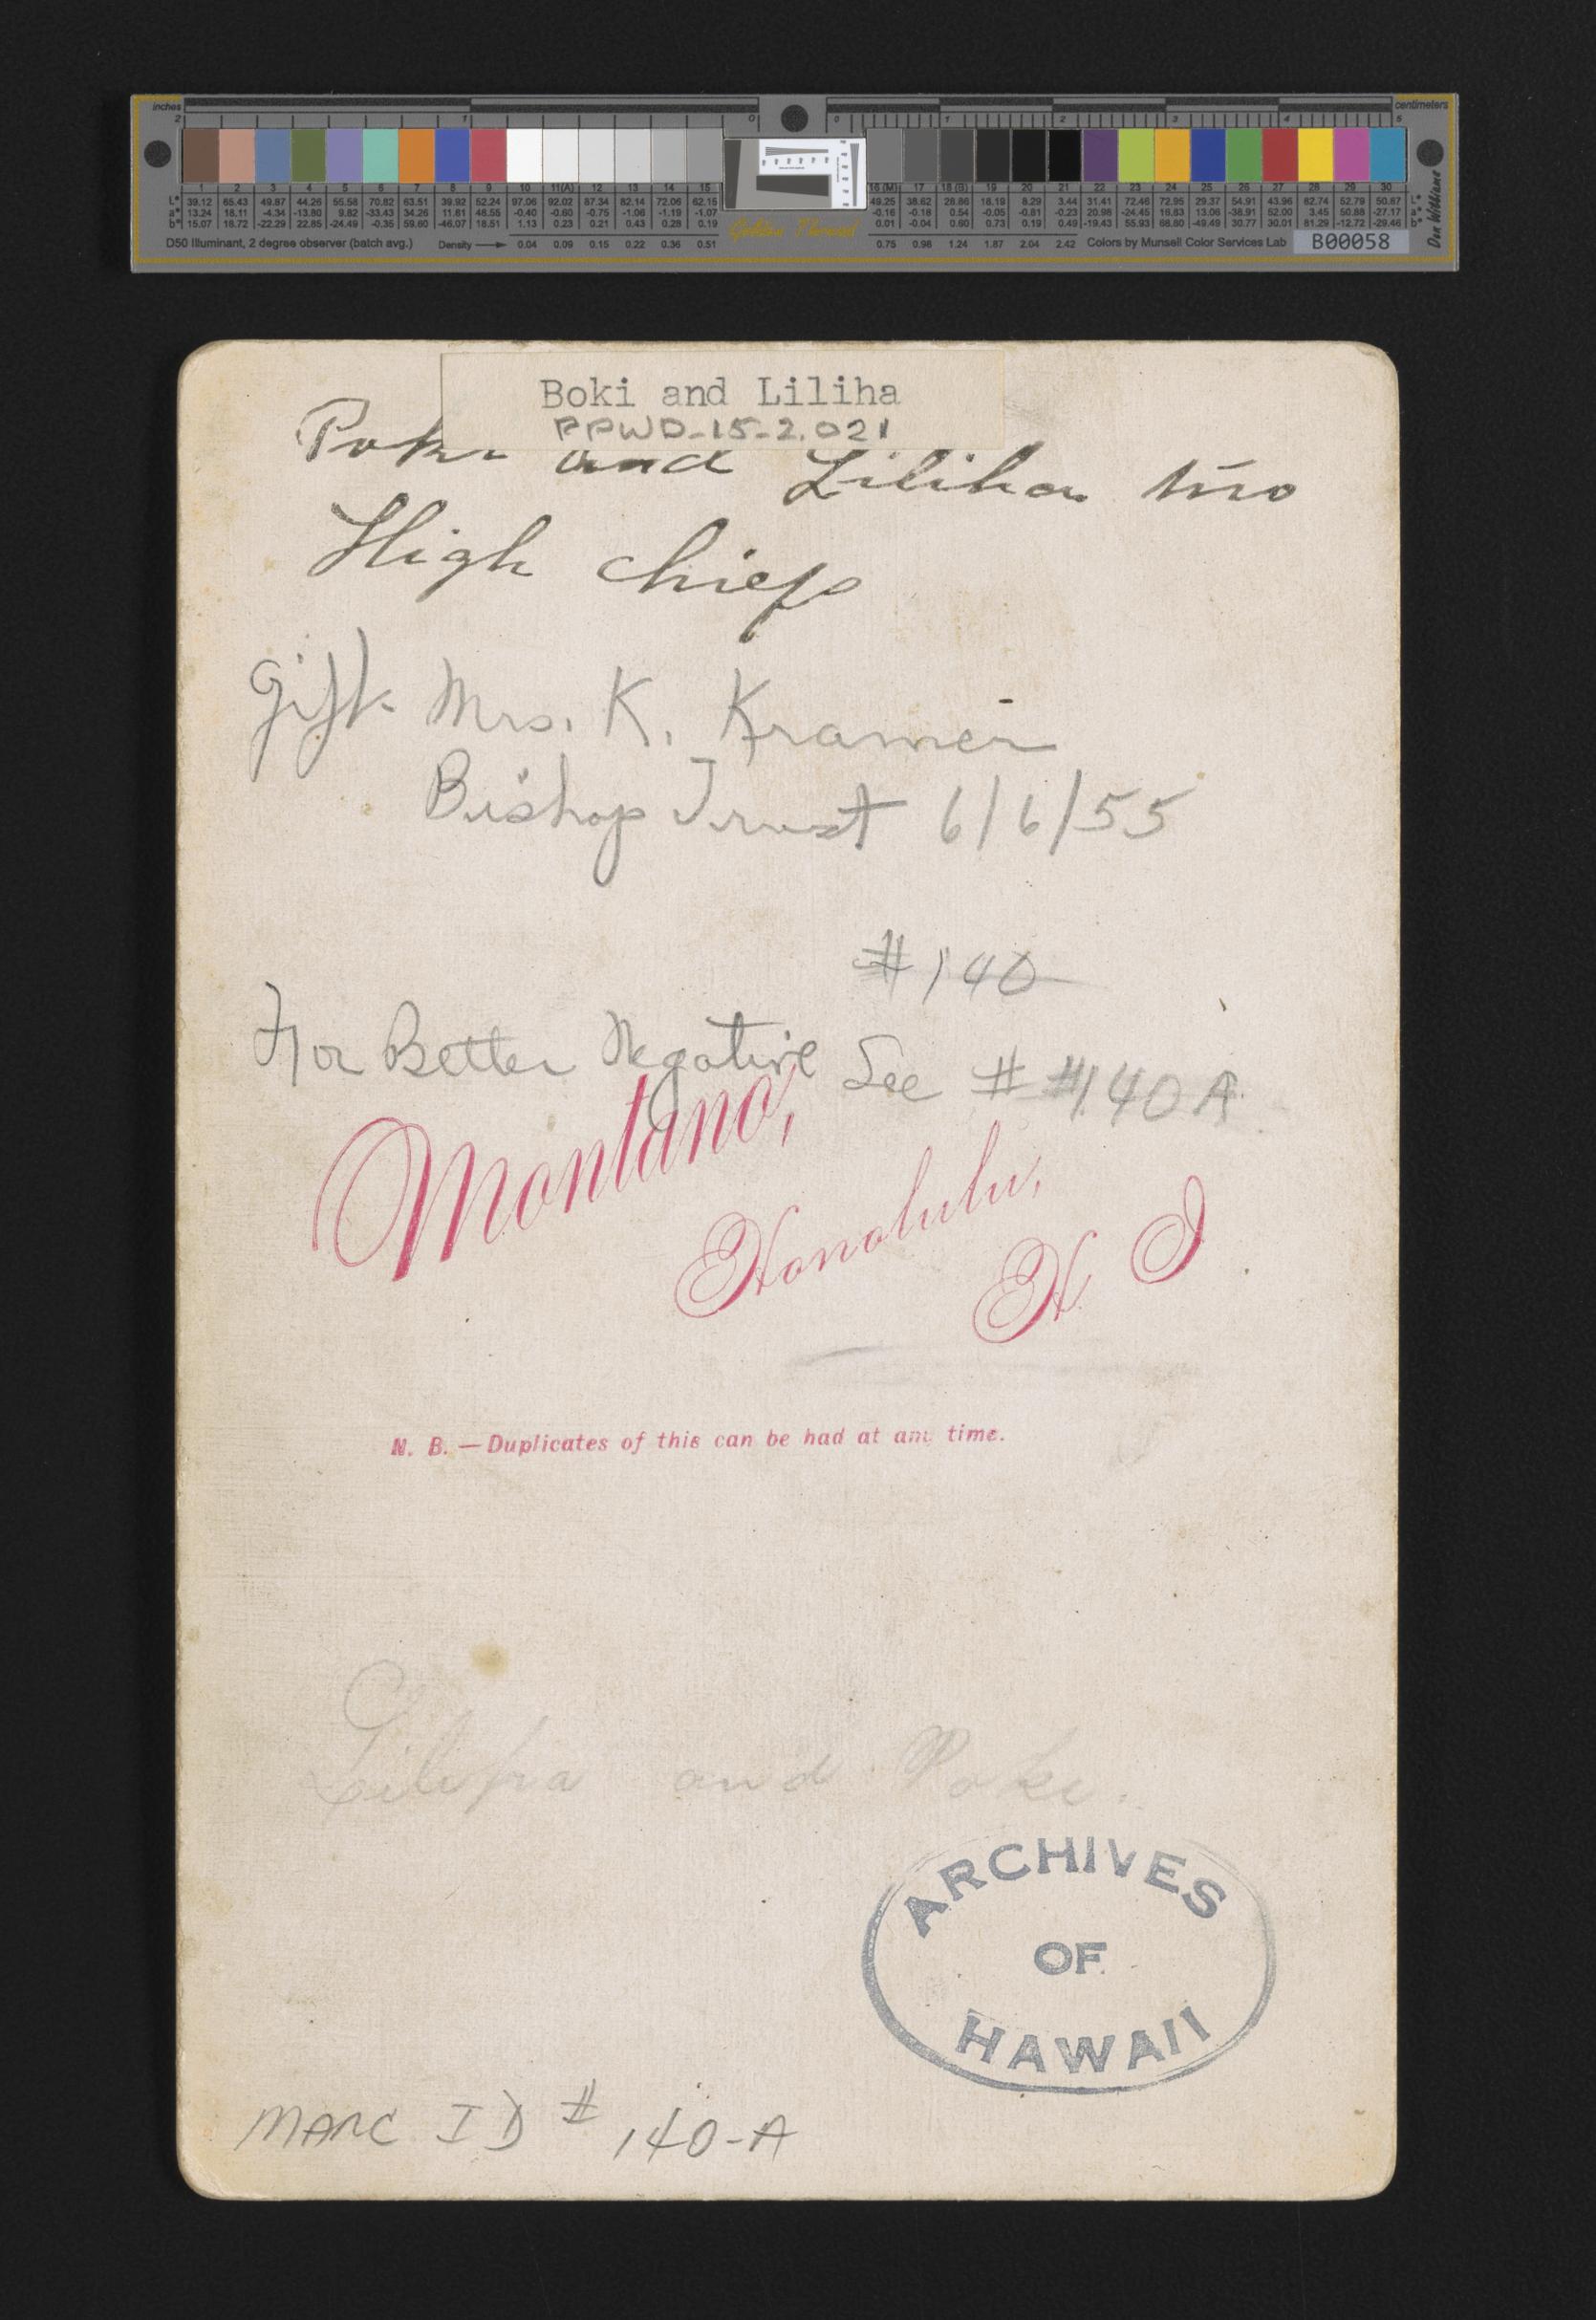 inches
centimeters
2 1 0 0 1 2 3 4 5
1 2 3 4 5 6 7 8 9 10 11(A) 12 13 14 15 16 (M) 17 18 (B) 19 20 21 22 23 24 25 26 27 28 29 30
L* 39.12 65.43 49.87 44.26 55.58 70.82 63.51 39.92 52.24 97.06 92.02 87.34 82.14 72.06 62.15 49.25 38.62 28.86 18.19 8.29 3.44 31.41 72.46 72.95 29.37 54.91 43.96 82.74 52.79 50.87
a* 13.24 18.11 -4.34 -13.80 9.82 -33.43 34.26 11.81 48.55 -0.40 -0.60 -0.75 -1.06 -1.19 -1.07 -0.16 -0.18 0.54 -0.05 -0.81 -0.23 20.98 -24.45 16.83 13.06 -38.91 52.00 3.45 50.88 -27.17
b* 15.07 18.72 -22.29 22.85 -24.49 -0.35 59.60 -46.07 18.51 1.13 0.23 0.21 0.43 0.28 0.19 0.01 -0.04 0.60 0.73 0.19 0.49 -19.43 55.93 68.80 -49.49 30.77 30.01 81.29 -12.72 -29.46
D50 Illuminant, 2 degree observer (batch avg.) Density 0.04 0.09 0.15 0.22 0.36 0.51 Golden Thread 0.75 0.98 1.24 1.87 2.04 2.42 Colors by Munsell Color Services Lab B00058
Don Williams
Boki and Liliha
PPWD-15-2.021
Poki and Liliha two
High chiefs
Gift Mrs. K. Kramer
Bishop Trust 6/6/55
#140
For Better Negative See # #140 A
Montano,
Honolulu,
H I
N. B.—Duplicates of this can be had at any time.
Liliha and Poki.
ARCHIVES
OF
HAWAII
MARC ID # 140-A